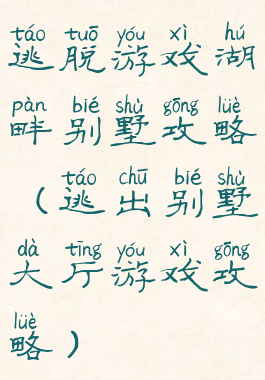 táo tuō yóu xì hú
逃脱游戏湖
pàn bié shù gōng lüè
畔别墅攻略
táo chū bié shù
（逃出别墅
dà tīng yóu xì gōng
大厅游戏攻
lüè
略）